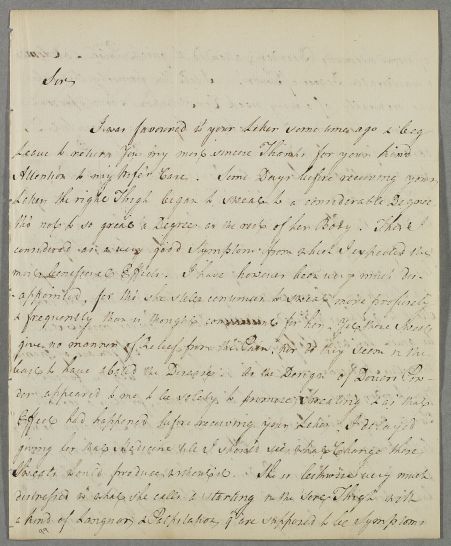 Sir
I was favoured wt your Letter some time ago & beg
Leave to return You my most sincere Thanks for your kind
Attention to my Wife's Case. Some Days before receiving your
Letter the right Thigh began to sweat to a considerable Degree
tho not to so great a Degree as the rest of her Body. This I
considered as a very good Symptom from which I expected the
most beneficial Effects. I have however been very much dis-
-appointed, for tho' she still continues to sweat more profusely
& frequently than is thought convenient for her. Yet these Sweats
give no manner of Relief from the Pain. Nor do they seem in the
least to have abated the Disease. As the Design of Dovers Pow-
-der appeared to me to be solely to promote Sweating & as that
Effect had happened before receiving your Letter I delayed
giving her that Medicine till I should see what Change these
Sweats would produce without it. She is likewise very much
distressed wt what she calls a starting in the Sore Thigh with
a kind of Langour & Palpitation, yt are supposed to be Symptoms